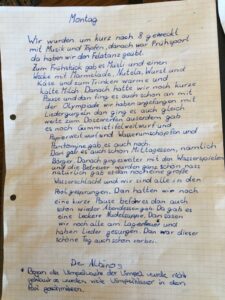 Montag
Wir wurden um kurz nach 8 geweckt
mit Musik und Töpfen, danach war Frühsport
da haben wir den Felatanz getanzt.
Zum Frühstück gab es Müsli und einen
Wecke mit Marmelade, Nutela, Wurst und
Käse und zum Trinken warme und
kalte Milch. Danach hatte wir noch kurze
Pause und dan ging es auch schon an mit
der Olympiade wir haben angefangen mit
Liedergurgeln dan ging es auch gleich
weite zum Dosenwerfen außerdem gab
es noch Gummistiefelweitwurf und
Papierweitwurf und Wasserrumschöpfen und
Pantomime gab es auch noch.
Dan gab es auch schon Mittagessen, nämlich
Bürger. Danach ging es weiter mit den Wasserspielen
und die Betreuer wurden ganz schön nass
natürlich gab es dan noch eine große
Wasserschlacht und wir sind alle in den
Pool gesprungen. Dan hatten wir noch
eine kurze Pause befor es dan auch
schon wieder Abendessen gab. Da gab es
eine leckere Nudelsuppe. Dan sasen
wir noch alle am Lagerfeuer und
haben Lieder gesungen. Dan war dieser
schöne Tag auch schon vorbei.
Die Albinos
die
wurde nicht
wurden, viele in den
Pool geschmissen.